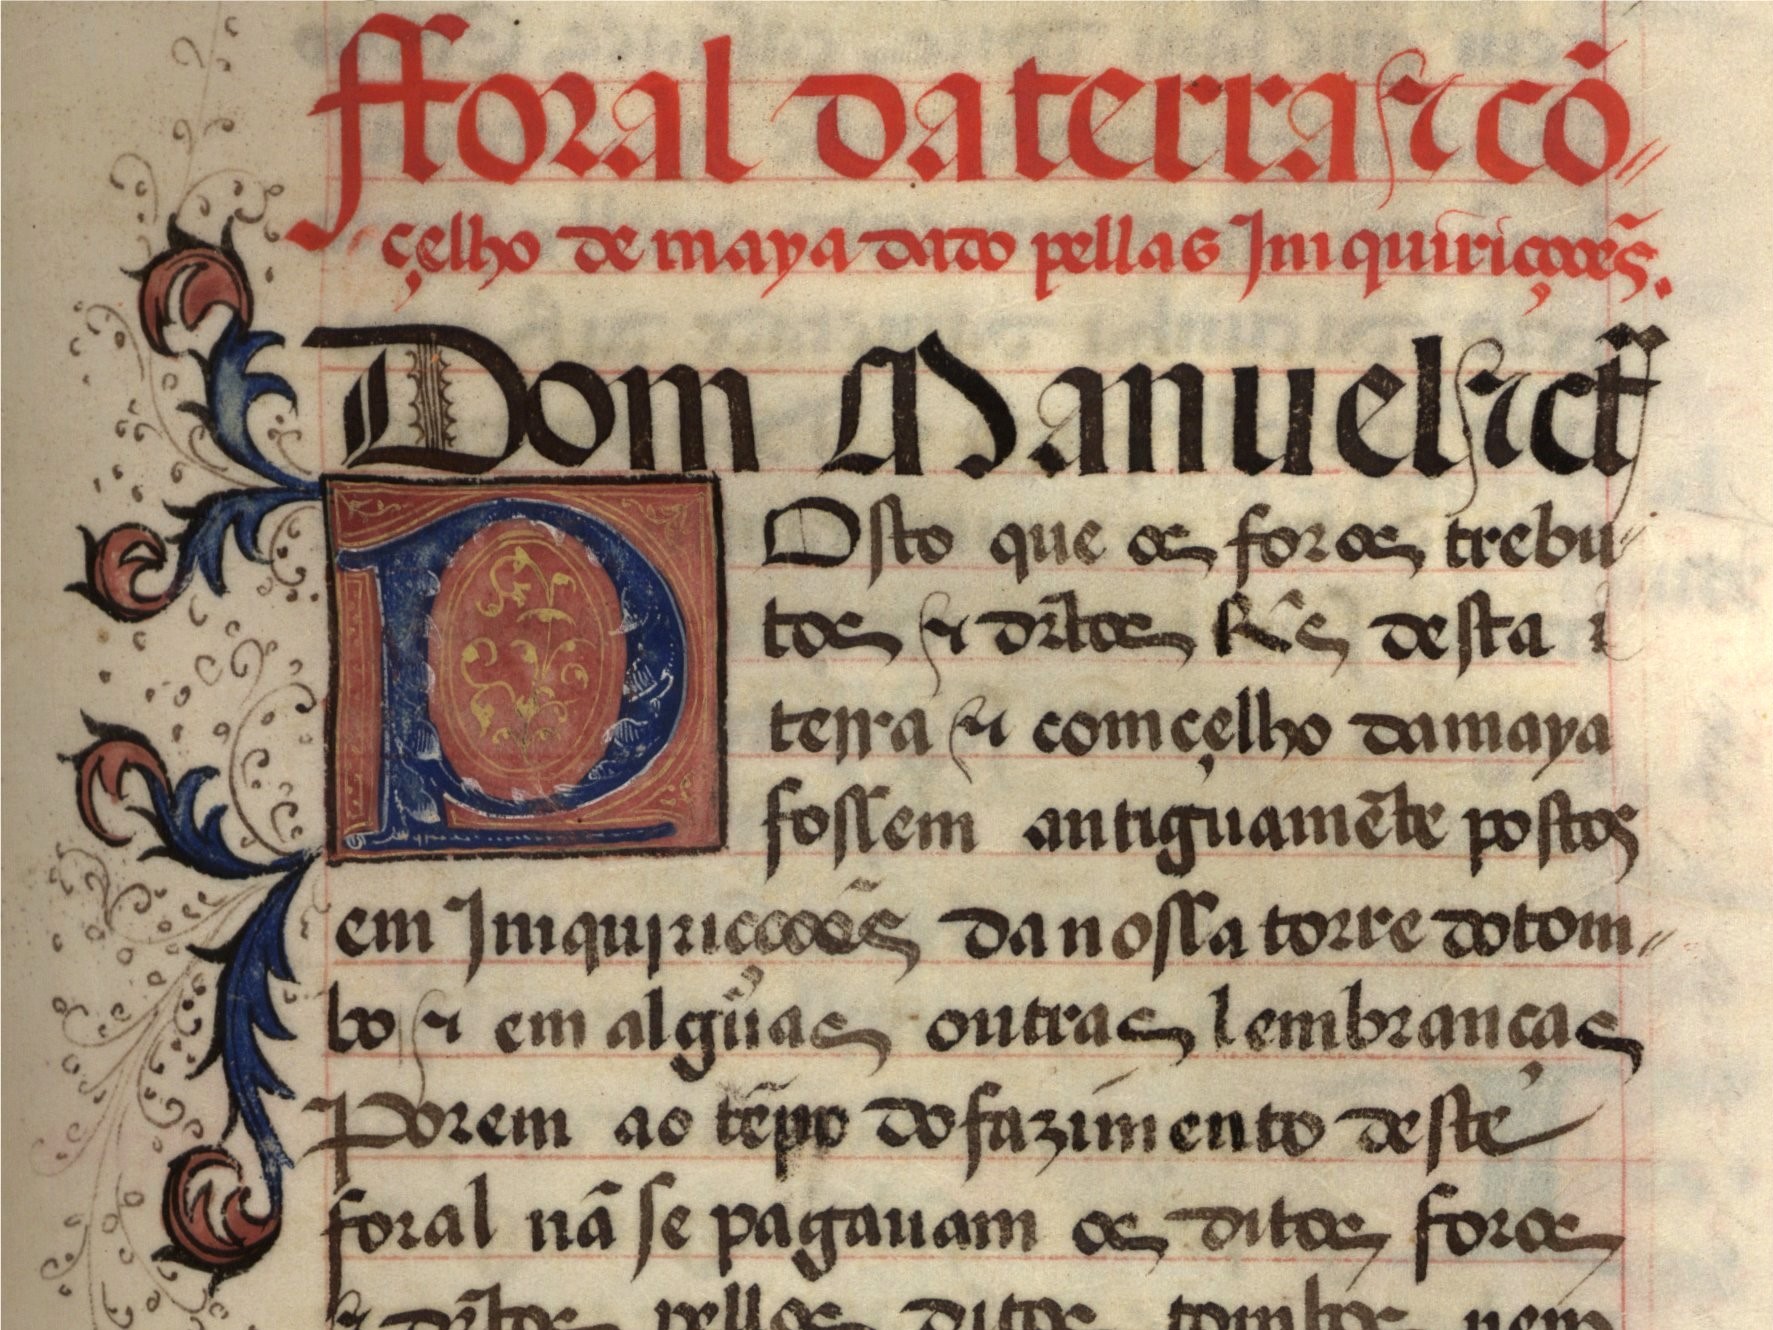 fforal da terra ⁊ cõ-
çelho de maya dado pellas Jmquiriçoões.
Dom Manuel ⁊ cṫ
POsto que os foros trebu-
tos ⁊ dr̃tos Rẽs desta
terra ⁊ comçelho da maya
fossem antiguamẽte postos
em Jmqujriçoões da nossa torre do tom-
bo ⁊ em algũas outras lembranças
Porem ao tẽpo do fazimento deste
foral nã se pagauam os ditos foros
⁊ dr̃tos pellos ditos tombos nem